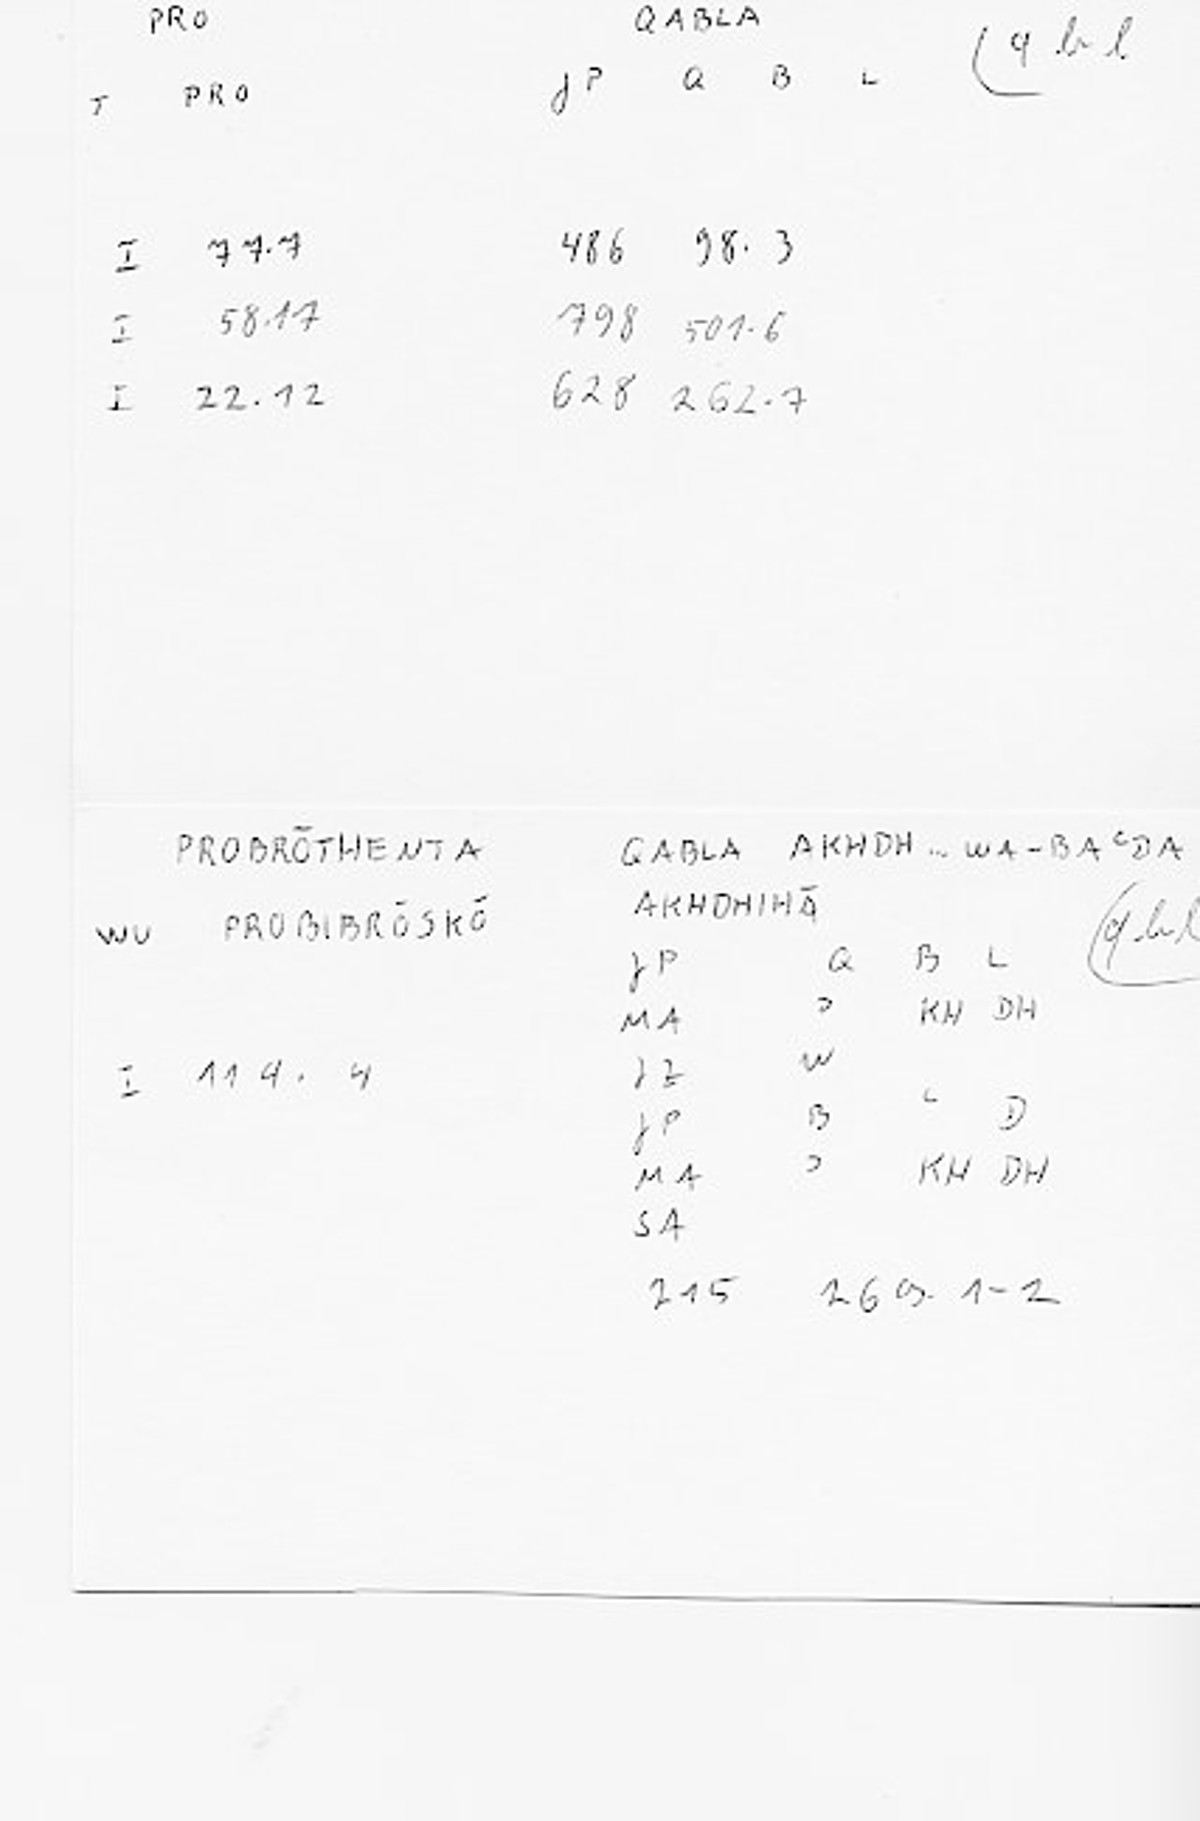 PRO QABLA (qbl
T PRO JP Q B L
I 77.7 486 98.3
I 58.17 798 501.6
I 22.12 628 262.7
PROBRŌTHENTA QABLA AKHDH... WA-BAʿDA
AKHDHIHĀ
WU PROBIBRŌSKŌ (qbl
JP Q B L
MA ʾ KH DH
JZ W
I 114.4
JP B ʿ D
MA ʾ KH DH
SA
215 269.1-2